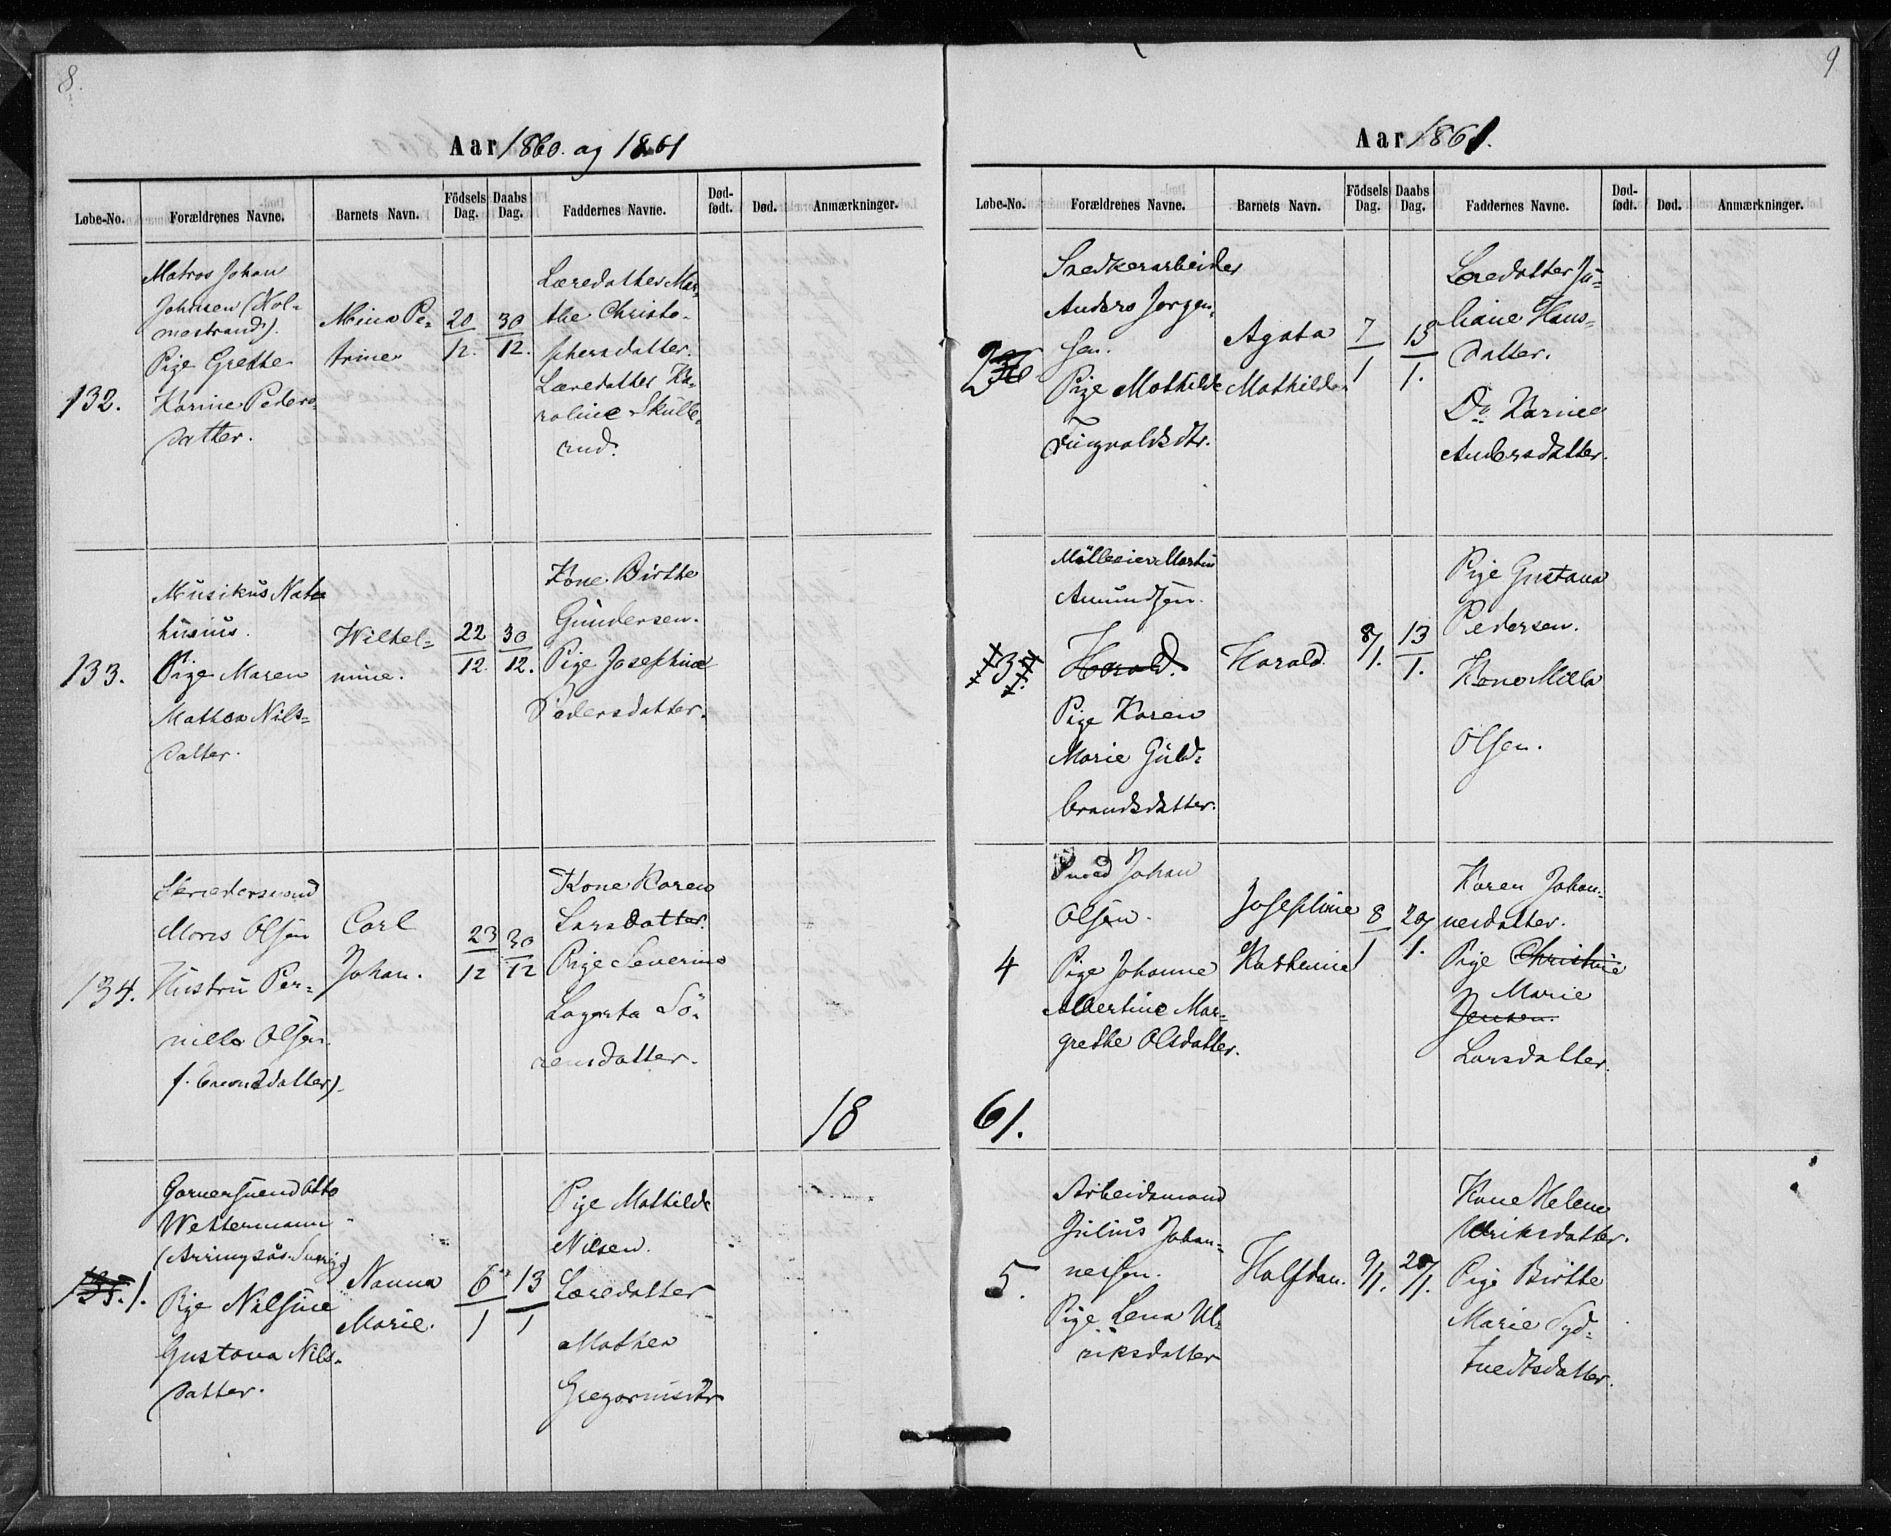 8.
Aar 1860. og 1861
Løbe-No. Forældrenes Navne. Barnets Navn. Födsels Dag. Daabs Dag. Faddernes Navne. Død-født. Død. Anmærkninger.
132.
Matros Johan
Johnsen (Hol-
mestrand).
Pige Grethe
Karine Peders-
datter.
Mina Pe-
trine
20/12.
30/12.
Læredatter Mar-
the Christo-
phersdatter.
Læredatter Ka-
roline Skulle-
rud.
133.
Musikus Nat
husius.
Pige Maren
Mathea Nils-
datter.
Wilhel-
mine.
22/12
30/12.
Kone Birthe
Gundersen.
Pige Josephine
Pedersdatter.
134.
Skrædersvend
Mons Olsen
Hustru Per-
nille Olsen
Carl
Johan.
23/12
30/12
Kone Karen
Larsdatter.
Pige Severine
Lagerta Sö-
rensdatter.
18
135. 1.
Garversvend Otto
Westermann
Pige Nilsine
Gustava Nils-
datter.
Nanna
Marie.
6/1
13/1
Pige Mathilde
Nilsen.
Læredatter
Mathea
Gregoriusdtr
9
Aar 1861.
Løbe-No. Forældrenes Navne. Barnets Navn. Födsels Dag. Daabs Dag. Faddernes Navne. Død-født. Død. Anmærkninger.
2
136
Snedkerarbeider
Anders Jörgen-
sen.
Pige Mathilde
Tingvaldsdtr.
Agata
Mathilde
7/1
13/1.
Læredatter Ju-
liane Hans-
datter.
Do Karine
Andersdatter.
3
Mölleeier Martin
Amundsen.
Harald.
Pige Karen
Marie Guld-
brandsdatter.
Harald.
8/1.
13/1.
Pige Gustava
Pedersen.
Kone Milla
Olsen.
4
Smed Johan
Olsen.
Pige Johanne
Albertine Mar-
grethe Olsdatter.
Josephine
Kathinca
8/1
20/1.
Karen Johan-
nesdatter.
Pige Christine
Marie
Jensen.
Larsdatter.
61.
5.
Arbeidsmand
Julius Johan-
nesen.
Pige Lena Ul-
riksdatter
Halfdan.
9/1.
20/1.
Kone Helene
Ulriksdatter.
Pige Birthe
Marie Syd-
tvedtsdatter.